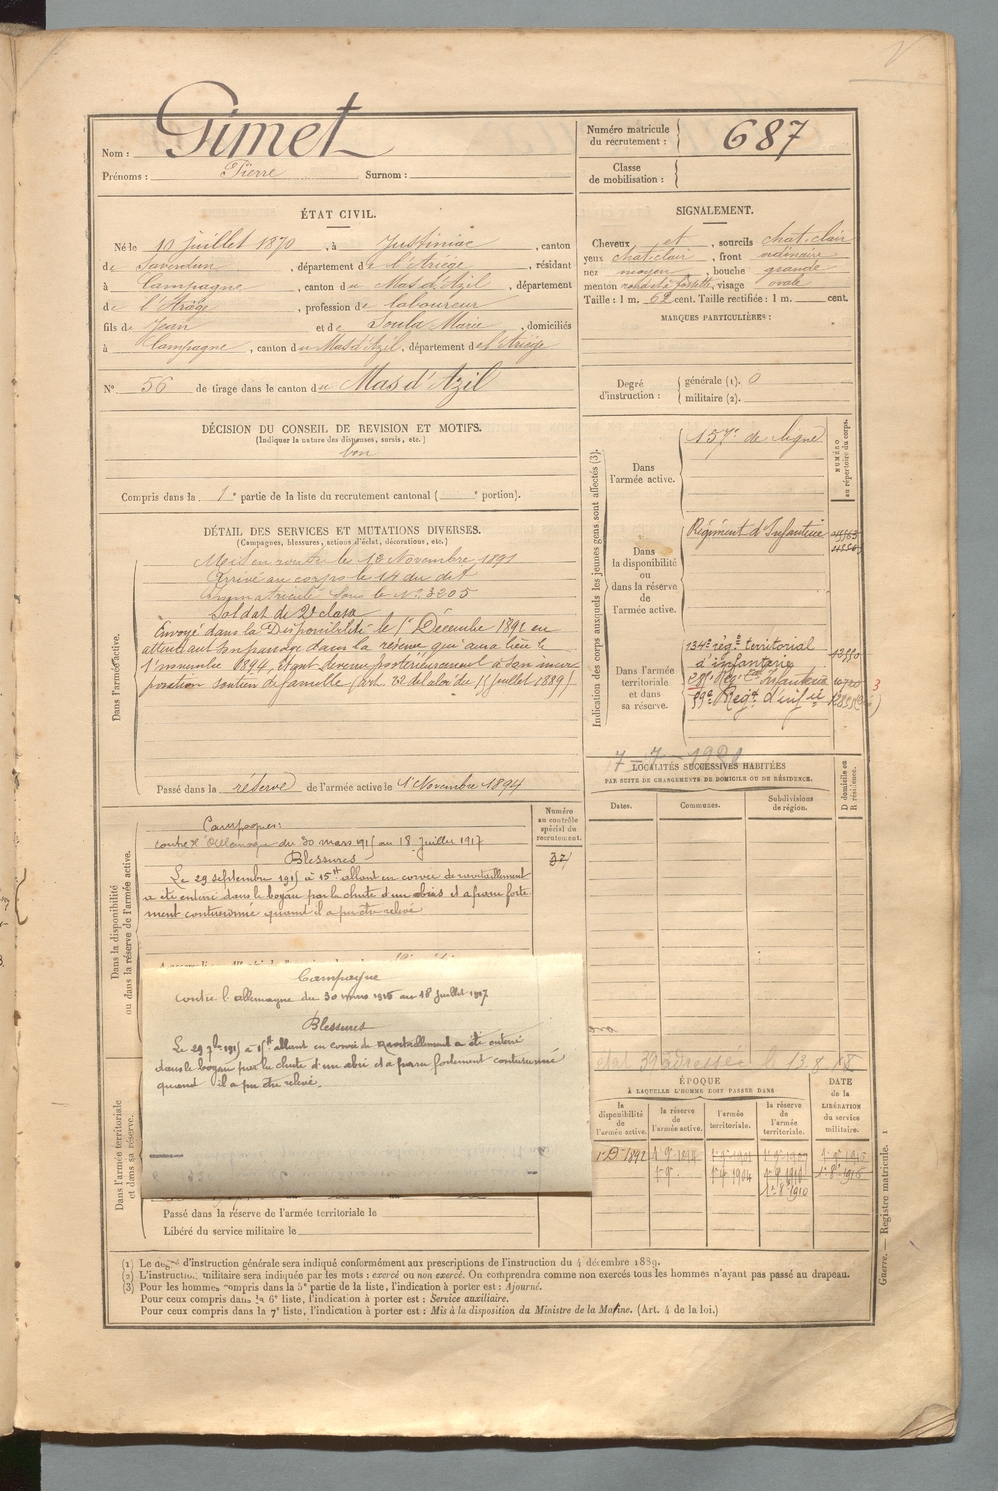 Nom : Gimet
Prénoms : Pierre Surnom :
Numéro matricule du recrutement : 687
Classe de mobilisation :
ÉTAT CIVIL.
Né le 10 juillet 1870, à Justiniac, canton
de Saverdun, département de l'Ariège, résidant
à Campagne, canton du Mas d'Azil, département
de l'Ariège, profession de laboureur
fils de Jean et de Soula Marie, domiciliés
à Campagne, canton du Mas d'Azil, département de l'Ariège
N° 56 de tirage dans le canton du Mas d'Azil
SIGNALEMENT.
Cheveux et, sourcils chat. clair
yeux chat. clair, front ordinaire
nez moyen, bouche grande
menton rond et à fossette, visage ovale
Taille : 1 m. 62 cent. Taille rectifiée : 1 m. cent.
MARQUES PARTICULIÈRES :
Degré d'instruction : générale (1). 0
militaire (2).
DÉCISION DU CONSEIL DE REVISION ET MOTIFS.
(Indiquer la nature des dispenses, sursis, etc.)
bon
Compris dans la 1e partie de la liste du recrutement cantonal ( e portion).
DÉTAIL DES SERVICES ET MUTATIONS DIVERSES.
(Campagnes, blessures, actions d'éclat, décorations, etc.)
Dans l'armée active.
Mis en route le 12 Novembre 1891
Arrivé au corps le 14 du dit
Immatriculé sous le N° 3205
Soldat de 2e classe
Envoyé dans la Disponibilité le 1er Décembre 1892 en
attendant son passage dans la réserve qui aura lieu le
1er novembre 1894, étant devenu postérieurement à son incor
poration soutien de famille (art. 22 de la loi du 15 juillet 1889)
Passé dans la réserve de l'armée active le 1er Novembre 1894
Indication des corps auxquels les jeunes gens sont affectés (3).
NUMÉRO au répertoire du corps.
Dans l'armée active.
Dans la disponibilité ou dans la réserve de l'armée active.
Régiment d'Infanterie
Dans l'armée territoriale et dans sa réserve.
134e rég.t territorial
d'infanterie
59e Reg.t d'inf.ie
3
LOCALITÉS SUCCESSIVES HABITÉES
PAR SUITE DE CHANGEMENTS DE DOMICILE OU DE RÉSIDENCE.
Dates. Communes. Subdivisions de région. D domicile ou R résidence.
Dans la disponibilité ou dans la réserve de l'armée active.
Numéro au contrôle spécial du recrutement.
Campagnes :
contre l'Allemagne du 30 mars 1915 au 18 juillet 1917
Blessures
Le 29 septembre 1915 à 15 H allant en corvée de ravitaillement
a été enterré dans le boyau par la chute d'un abris et a paru forte
ment contusionné quand il a pu être relevé
Campagne
contre l'allemagne du 30 mars 1915 au 18 juillet 1917
Blessures
Le 29 7bre 1915 à 15 H allant en corvée de ravitaillement a été enterré
dans le boyau par la chute d'un abri et a paru fortement contusionné
quand il a pu être relevé.
Dans l'armée territoriale et dans sa réserve.
Passé dans la réserve de l'armée territoriale le
Libéré du service militaire le
ÉPOQUE
À LAQUELLE L'HOMME DOIT PASSER DANS
la disponibilité de l'armée active. la réserve de l'armée active. l'armée territoriale. la réserve de l'armée territoriale.
DATE de la LIBÉRATION du service militaire.
Guerre. — Registre matricule. 1
(1) Le degré d'instruction générale sera indiqué conformément aux prescriptions de l'instruction du 4 décembre 1889.
(2) L'instruction militaire sera indiquée par les mots : exercé ou non exercé. On comprendra comme non exercés tous les hommes n'ayant pas passé au drapeau.
(3) Pour les hommes compris dans la 5e partie de la liste, l'indication à porter est : Ajourné.
Pour ceux compris dans la 6e liste, l'indication à porter est : Service auxiliaire.
Pour ceux compris dans la 7e liste, l'indication à porter est : Mis à la disposition du Ministre de la Marine. (Art. 4 de la loi.)